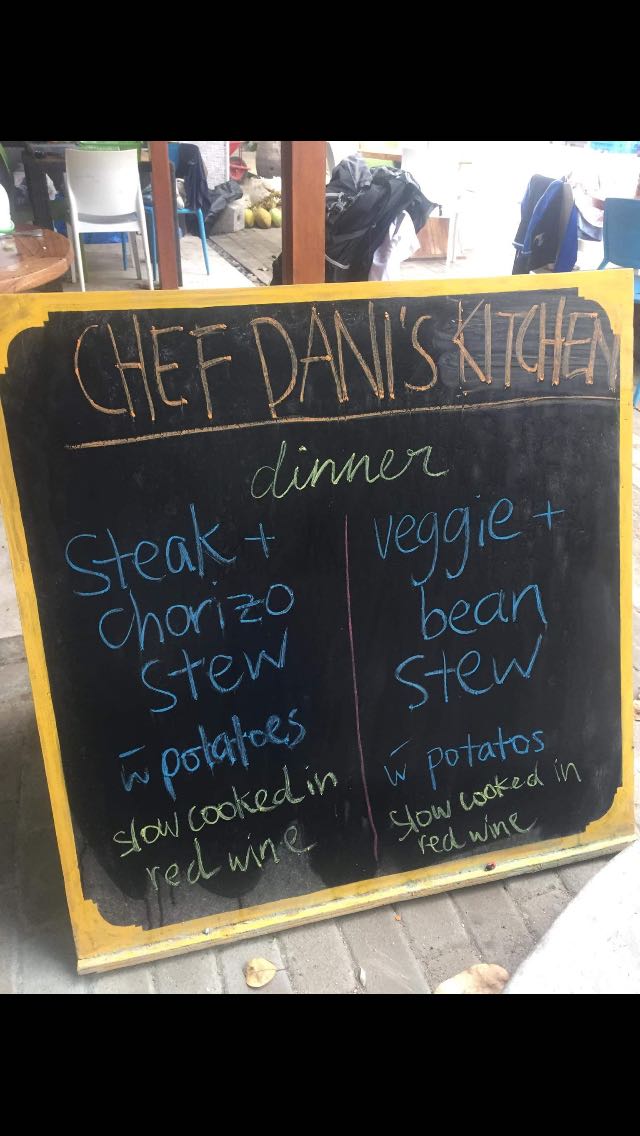 CHEF DANI'S KITCHEN
dinner
Steak +
chorizo
stew
w̄ potatoes
slow cooked in
red wine
veggie +
bean
stew
w̄ potatos
slow cooked in
red wine